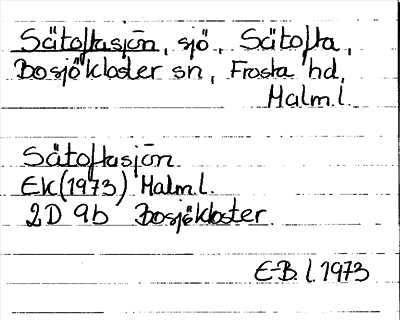 Sätoftasjön, sjö, Sätofta,
Bosjökloster sn, Frosta hd,
Malm.l.
Sätoftasjön
EK(1973) Malm.l.
2D 9b Bosjökloster
E-B. l. 1973